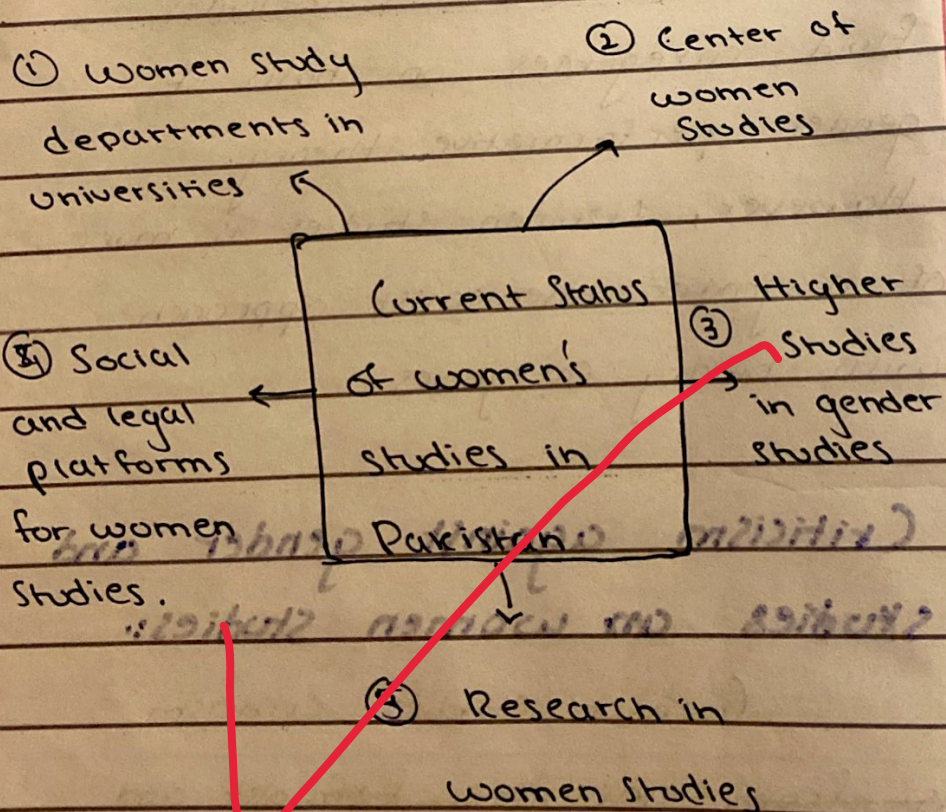 ① Women study
departments in
universities
② Center of
women
Studies
Current Status
of women's
studies in
Pakistan
③ Higher
Studies
in gender
studies
Social
and legal
platforms
for women
Studies.
Research in
women studies